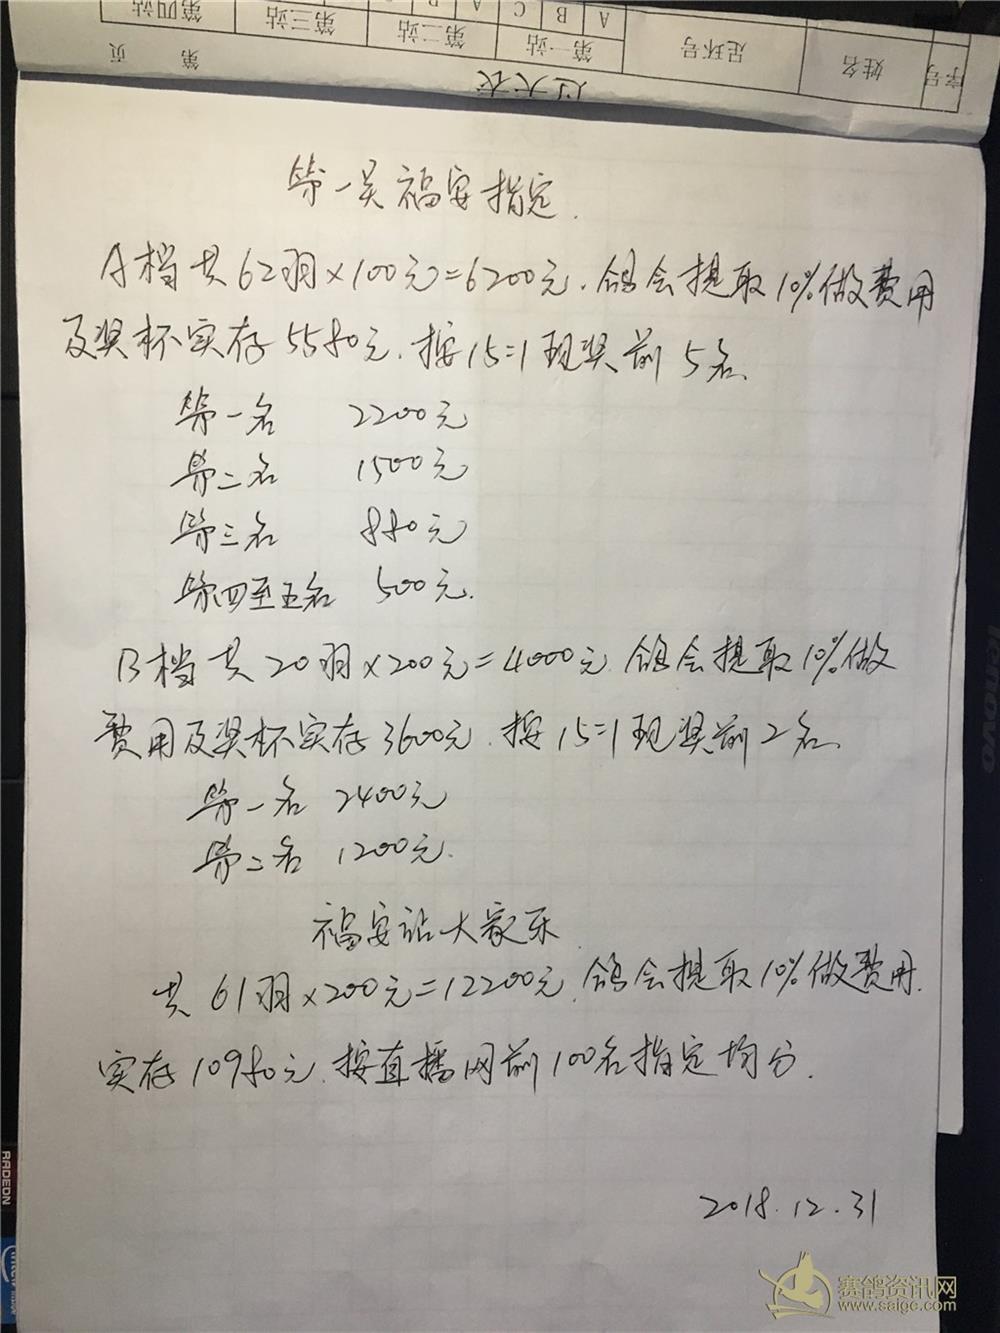 第四站 第三站 第二站 第一站 足环号 姓名 序号
A B C A B
第 页
过大农
第一关福安指定.
A档共62羽×100元=6200元.鸽会提取10%做费用
及奖杯实存5580元.按15=1现奖前5名.
第一名 2200元
第二名 1500元
第三名 880元
第四至五名 500元.
B档共20羽×200元=4000元.鸽会提取10%做
费用及奖杯实存3600元.按15=1现奖前2名.
第一名 2400元
第二名 1200元.
福安站大家乐
共61羽×200元=12200元.鸽会提取10%做费用.
实存10980元.按直播网前100名指定均分.
2018.12.31
lenovo
RADEON
赛鸽资讯网
www.saigc.com